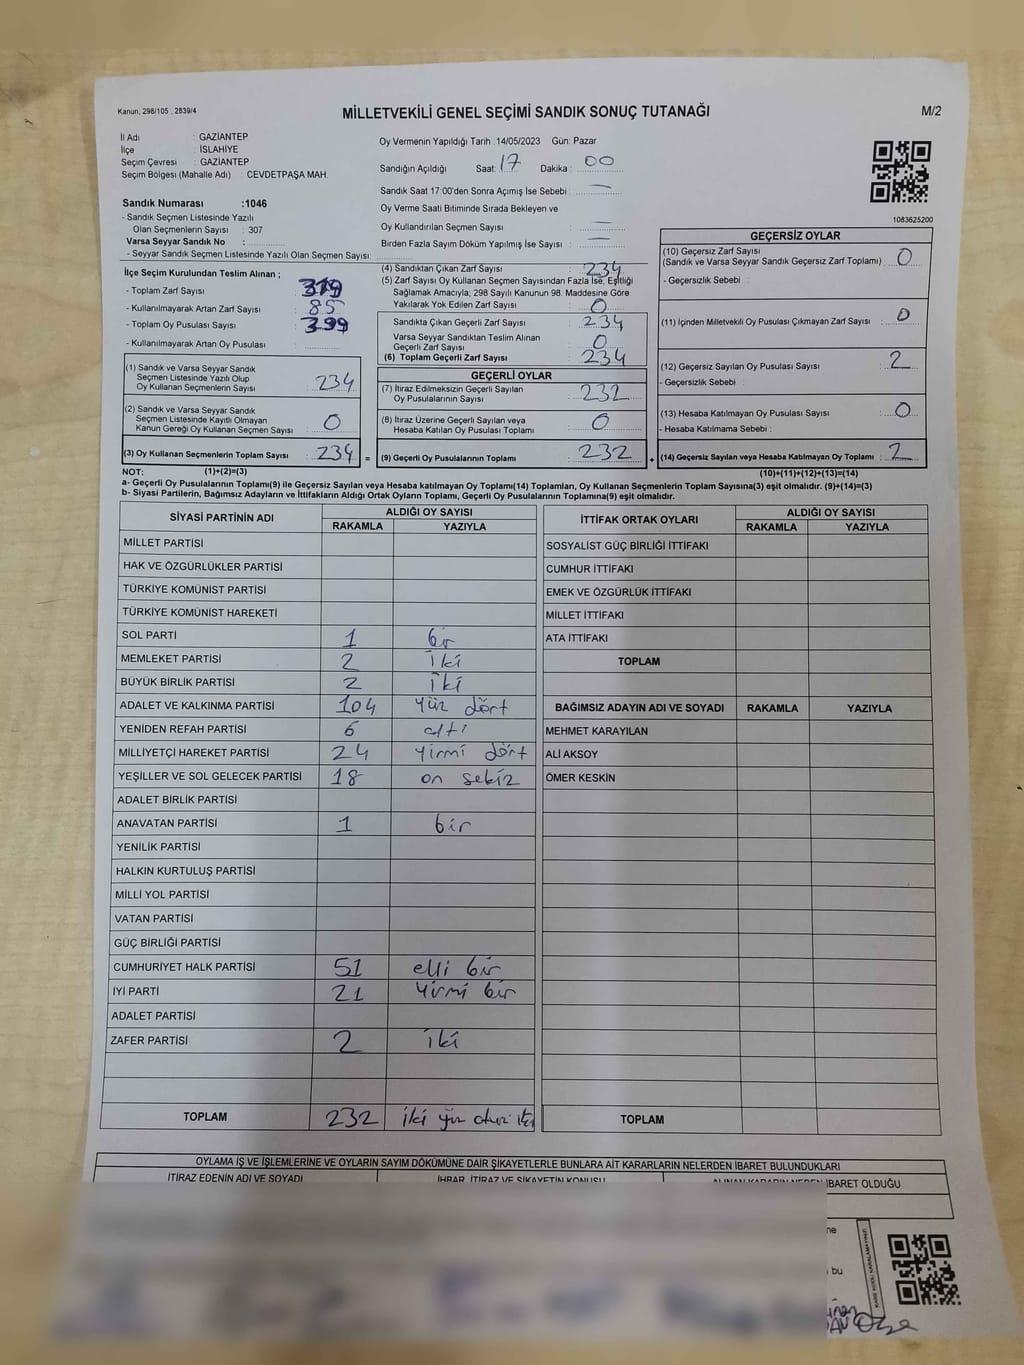 Kanun, 298/105 , 2839/4
MİLLETVEKİLİ GENEL SEÇİMİ SANDIK SONUÇ TUTANAĞI
M/2
İl Adı : GAZİANTEP
İlçe : İSLAHİYE
Seçim Çevresi : GAZİANTEP
Seçim Bölgesi (Mahalle Adı) : CEVDETPAŞA MAH.
Sandık Numarası :1046
- Sandık Seçmen Listesinde Yazılı
Olan Seçmenlerin Sayısı : 307
Varsa Seyyar Sandık No :
- Seyyar Sandık Seçmen Listesinde Yazılı Olan Seçmen Sayısı:
Oy Vermenin Yapıldığı Tarih :14/05/2023 Gün: Pazar
Sandığın Açıldığı Saat: 17 Dakika : 00
Sandık Saat 17:00'den Sonra Açımış İse Sebebi : —
Oy Verme Saati Bitiminde Sırada Bekleyen ve
Oy Kullandırılan Seçmen Sayısı : —
Birden Fazla Sayım Döküm Yapılmış İse Sayısı : —
1083625200
İlçe Seçim Kurulundan Teslim Alınan ;
- Toplam Zarf Sayısı : 319
- Kullanılmayarak Artan Zarf Sayısı : 85
- Toplam Oy Pusulası Sayısı : 399
- Kullanılmayarak Artan Oy Pusulası :
(1) Sandık ve Varsa Seyyar Sandık
Seçmen Listesinde Yazılı Olup
Oy Kullanan Seçmenlerin Sayısı : 234
(2) Sandık ve Varsa Seyyar Sandık
Seçmen Listesinde Kayıtlı Olmayan
Kanun Gereği Oy Kullanan Seçmen Sayısı : 0
(3) Oy Kullanan Seçmenlerin Toplam Sayısı : 234 =
(4) Sandıktan Çıkan Zarf Sayısı : 234
(5) Zarf Sayısı Oy Kullanan Seçmen Sayısından Fazla İse, Eşitliği
Sağlamak Amacıyla; 298 Sayılı Kanunun 98. Maddesine Göre
Yakılarak Yok Edilen Zarf Sayısı : 0
Sandıkta Çıkan Geçerli Zarf Sayısı : 234
Varsa Seyyar Sandıktan Teslim Alınan
Geçerli Zarf Sayısı : 0
(6) Toplam Geçerli Zarf Sayısı : 234
GEÇERLİ OYLAR
(7) İtiraz Edilmeksizin Geçerli Sayılan
Oy Pusulalarının Sayısı : 232
(8) İtiraz Üzerine Geçerli Sayılan veya
Hesaba Katılan Oy Pusulası Toplamı : 0
(9) Geçerli Oy Pusulalarının Toplamı : 232 +
GEÇERSİZ OYLAR
(10) Geçersiz Zarf Sayısı
(Sandık ve Varsa Seyyar Sandık Geçersiz Zarf Toplamı) : 0
- Geçersizlik Sebebi :
(11) İçinden Milletvekili Oy Pusulası Çıkmayan Zarf Sayısı : 0
(12) Geçersiz Sayılan Oy Pusulası Sayısı : 2
- Geçersizlik Sebebi :
(13) Hesaba Katılmayan Oy Pusulası Sayısı : 0
- Hesaba Katılmama Sebebi :
(14) Geçersiz Sayılan veya Hesaba Katılmayan Oy Toplamı : 2
NOT: (1)+(2)=(3) (10)+(11)+(12)+(13)=(14)
a- Geçerli Oy Pusulalarının Toplamı(9) ile Geçersiz Sayılan veya Hesaba katılmayan Oy Toplamı(14) Toplamları, Oy Kullanan Seçmenlerin Toplam Sayısına(3) eşit olmalıdır. (9)+(14)=(3)
b- Siyasi Partilerin, Bağımsız Adayların ve İttifakların Aldığı Ortak Oyların Toplamı, Geçerli Oy Pusulalarının Toplamına(9) eşit olmalıdır.
SİYASİ PARTİNİN ADI ALDIĞI OY SAYISI
RAKAMLA YAZIYLA
MİLLET PARTİSİ
HAK VE ÖZGÜRLÜKLER PARTİSİ
TÜRKİYE KOMÜNİST PARTİSİ
TÜRKİYE KOMÜNİST HAREKETİ
SOL PARTİ 1 bir
MEMLEKET PARTİSİ 2 iki
BÜYÜK BİRLİK PARTİSİ 2 iki
ADALET VE KALKINMA PARTİSİ 104 yüz dört
YENİDEN REFAH PARTİSİ 6 altı
MİLLİYETÇİ HAREKET PARTİSİ 24 yirmi dört
YEŞİLLER VE SOL GELECEK PARTİSİ 18 on sekiz
ADALET BİRLİK PARTİSİ
ANAVATAN PARTİSİ 1 bir
YENİLİK PARTİSİ
HALKIN KURTULUŞ PARTİSİ
MİLLİ YOL PARTİSİ
VATAN PARTİSİ
GÜÇ BİRLİĞİ PARTİSİ
CUMHURİYET HALK PARTİSİ 51 elli bir
İYİ PARTİ 21 yirmi bir
ADALET PARTİSİ
ZAFER PARTİSİ 2 iki
TOPLAM 232 iki yüz otuz iki
İTTİFAK ORTAK OYLARI ALDIĞI OY SAYISI
RAKAMLA YAZIYLA
SOSYALİST GÜÇ BİRLİĞİ İTTİFAKI
CUMHUR İTTİFAKI
EMEK VE ÖZGÜRLÜK İTTİFAKI
MİLLET İTTİFAKI
ATA İTTİFAKI
TOPLAM
BAĞIMSIZ ADAYIN ADI VE SOYADI RAKAMLA YAZIYLA
MEHMET KARAYILAN
ALİ AKSOY
ÖMER KESKİN
TOPLAM
OYLAMA İŞ VE İŞLEMLERİNE VE OYLARIN SAYIM DÖKÜMÜNE DAİR ŞİKAYETLERLE BUNLARA AİT KARARLARIN NELERDEN İBARET BULUNDUKLARI
İTİRAZ EDENİN ADI VE SOYADI İHBAR, İTİRAZ VE ŞİKAYETİN KONUSU ALINAN KARARIN NEDEN İBARET OLDUĞU
bu